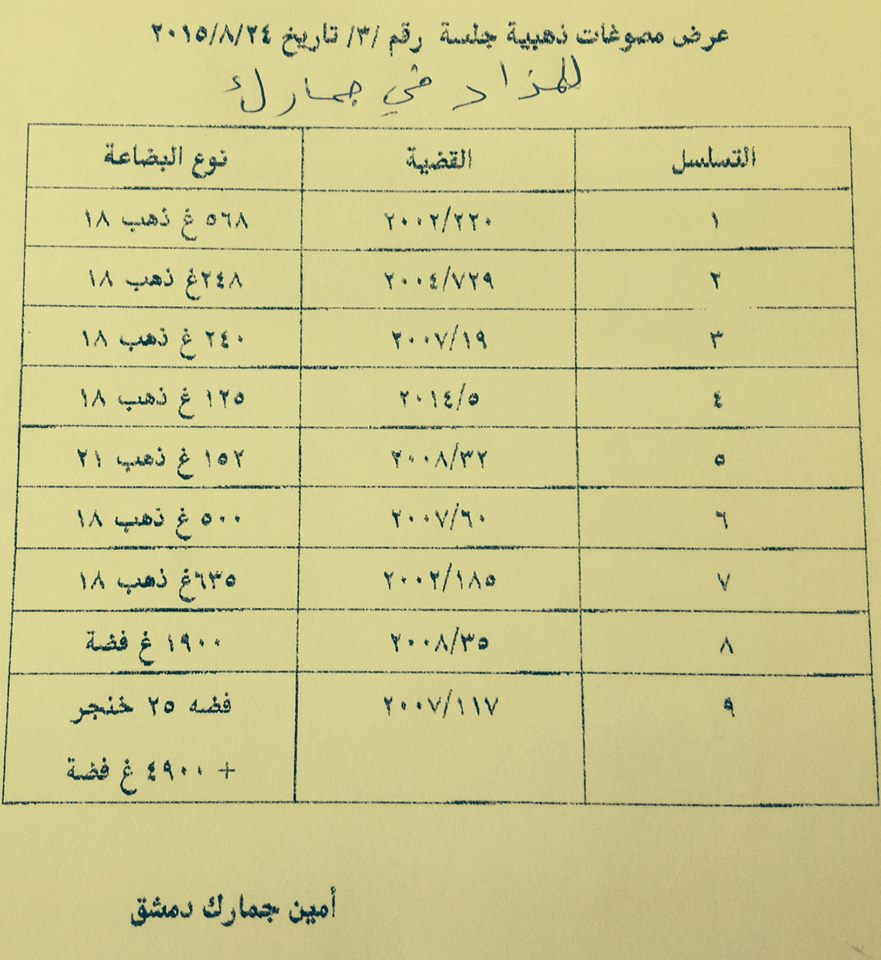 عرض مصوغات ذهبية جلسة رقم /٣/ تاريخ ٢٠١٥/٨/٢٤
للمزاد في جمارك
التسلسل القضية نوع البضاعة
١ ٢٠٠٢/٢٢٠ ٥٦٨ غ ذهب ١٨
٢ ٢٠٠٤/٧٢٩ ٢٤٨غ ذهب ١٨
٣ ٢٠٠٧/١٩ ٢٤٠ غ ذهب ١٨
٤ ٢٠١٤/٥ ١٢٥ غ ذهب ١٨
٥ ٢٠٠٨/٣٢ ١٥٢ غ ذهب ٢١
٦ ٢٠٠٧/٦٠ ٥٠٠ غ ذهب ١٨
٧ ٢٠٠٢/١٨٥ ٦٣٥غ ذهب ١٨
٨ ٢٠٠٨/٣٥ ١٩٠٠ غ فضة
٩ ٢٠٠٧/١١٧ فضه ٢٥ خنجر
+ ٤٩٠٠ غ فضة
أمين جمارك دمشق